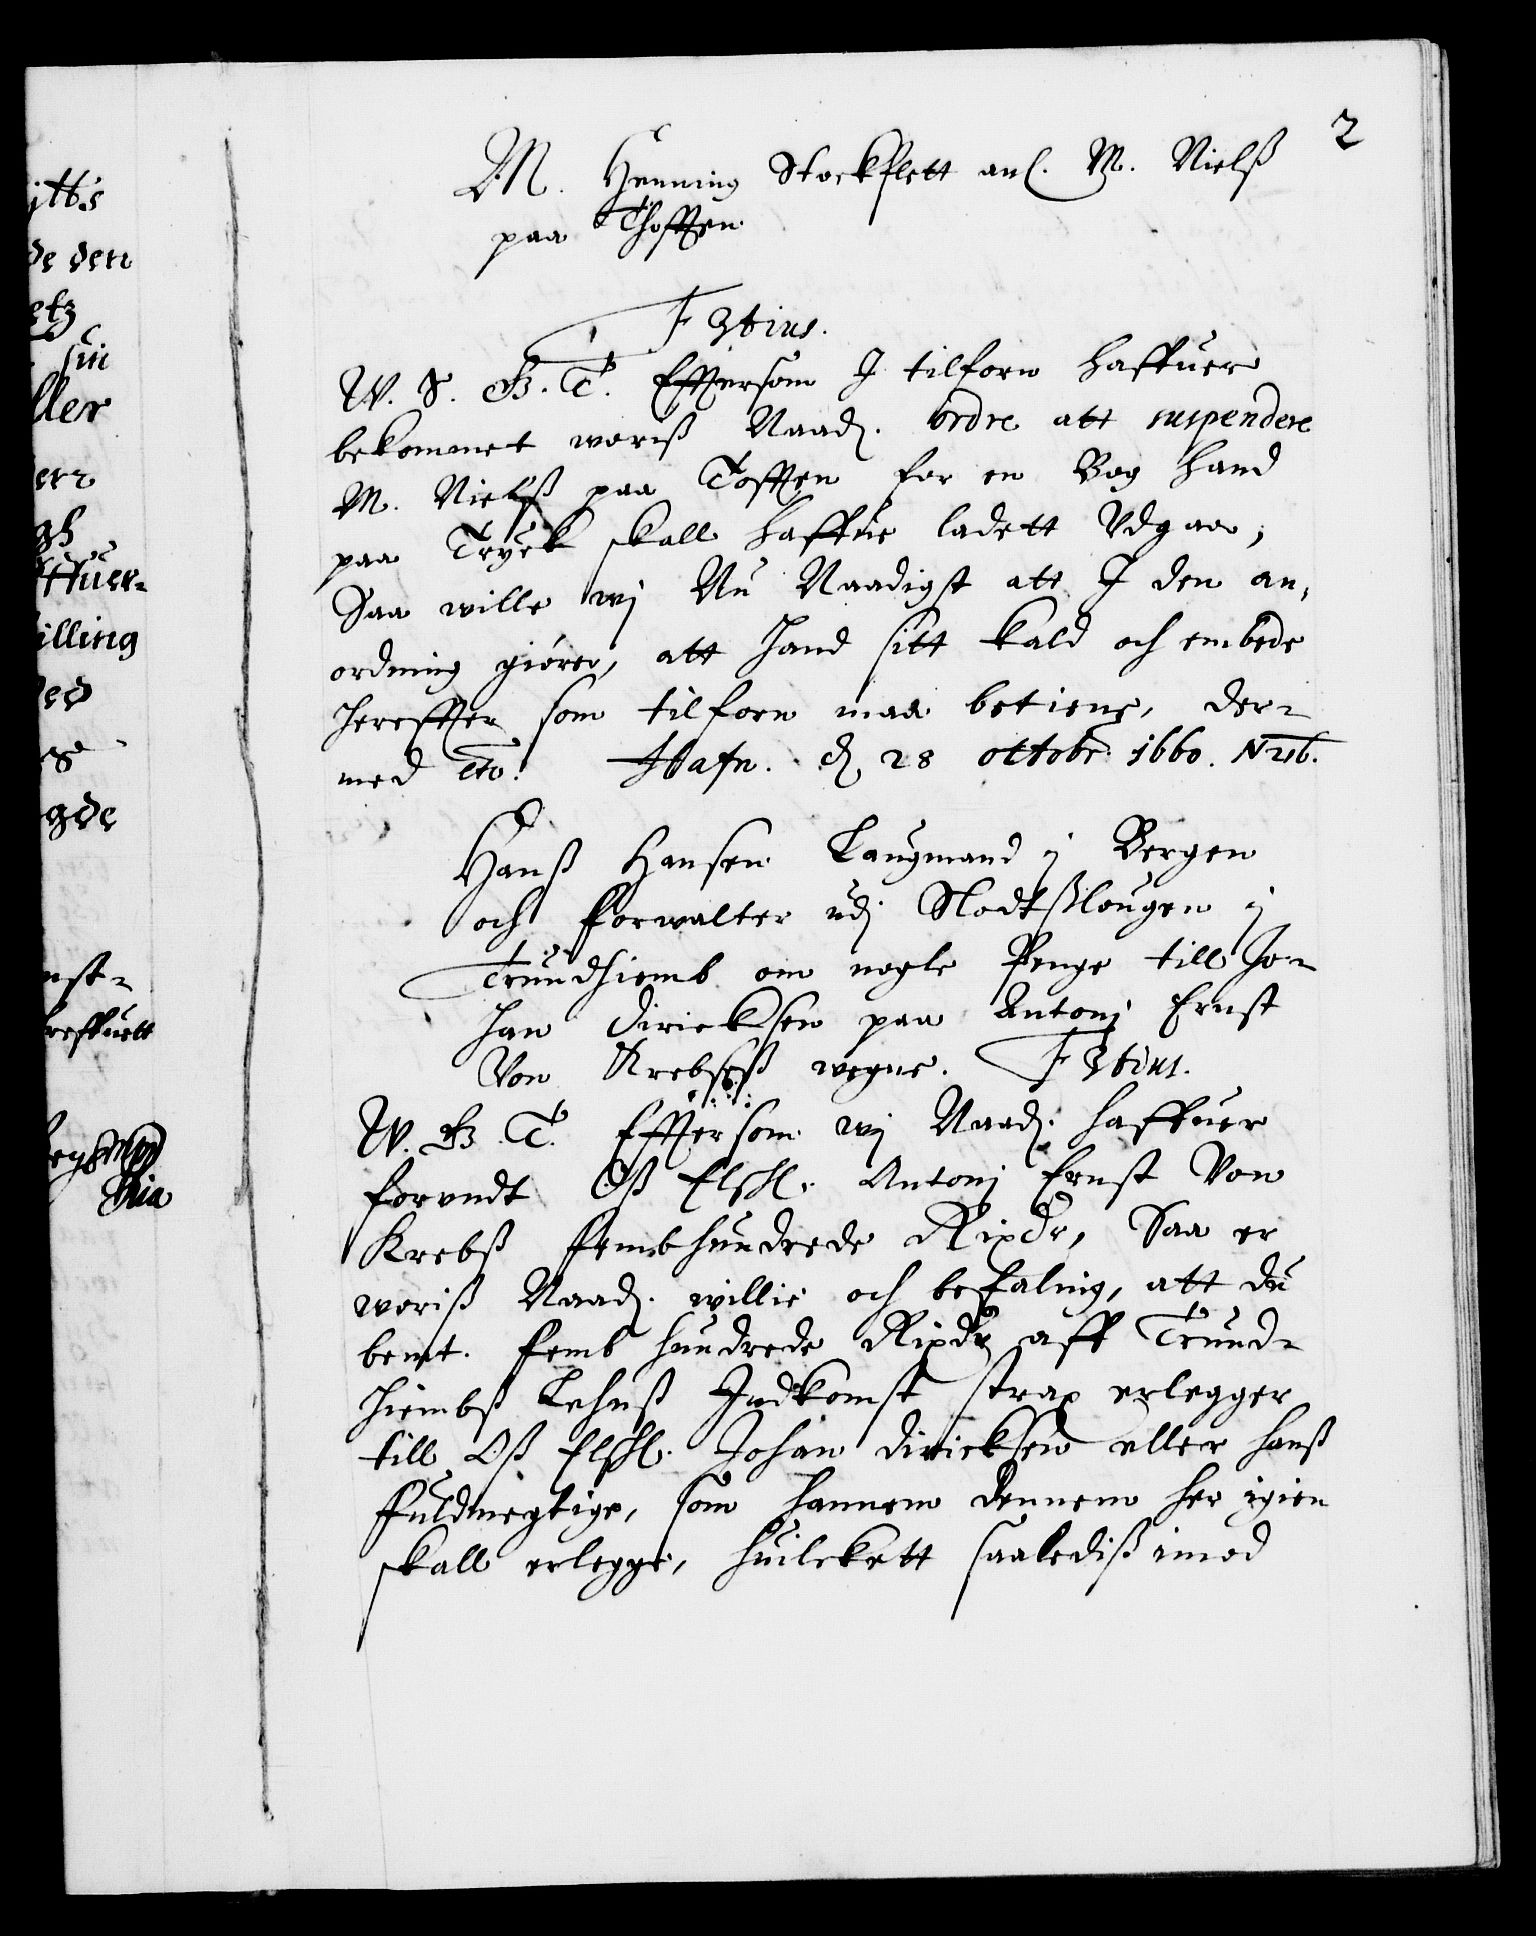 2
M. Henning Stockflett anl. M. Nielß
paa Thofften
F 3tius.
W. S. G. T. Efftersom I tilforn haffuer
bekommet woriß Naad. ordre att suspendere
M. Nielß paa Tofften for en Bog hand
paa Tryck skall haffue ladett Vdgaa,
Saa wille wj Nu Naadigst att I den an,
ordning giører, att hand sitt kald och embede
hereffter som tilforn maa betiene, der-
med etc. Hafn. d. 28 octobr 1660.
Hanß Hansen Laugmand j Bergen
och forwalter udj Slodtßlougen j
Trundhiemb om nogle Penge till Jo-
han Diricksen paa Antonj Ernst
Von Krebseß wegne. F 3tius.
W. G. T. Efftersom wj Naad. haffuer
forundt Oß Elschl. Antonj Ernst Von
Krebß fembhundrede Rixdr, Saa er
woriß Naad. willie och befaling, att du
bemt. femb hundrede Rixdr aff Trund-
hiembß Lehnß Indkomst strax erlegger
till Oß Elschl. Johan diricksen eller hanß
fuldmegtige, som hannem dennem her igien
skall erlegge, huilckett saalediß imod
itts
de den
etz
sin
ller
gh
ffuer-
illing
ed
gde
nst-
reffuett